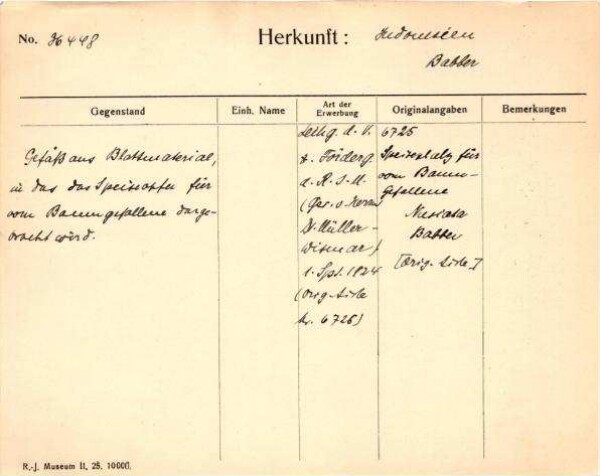 No. 36448 Herkunft: Indonesien
Babber
Gegenstand Einh. Name Art der Erwerbung Originalangaben Bemerkungen
Gefäß aus Blattmaterial,
in das das Speiseopfer für
vom Baum gefallene darge-
bracht wird.
d. V.
z. Förderg
d. R.-J.-M
Dr Müller-
Wismar)
1. Spt. 1924
(Orig.-Liste
Nr. 6725)
6725
für
vom Baum-
gefallene
Babber
[Orig.-Liste]
R.-J. Museum II. 25. 10000.